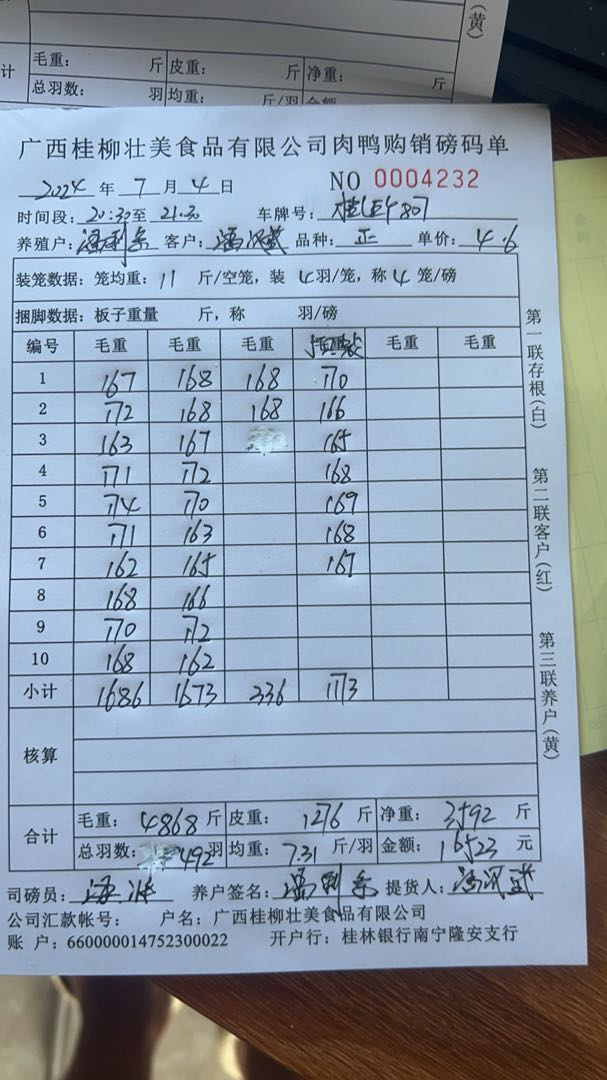 (黄)
计 毛重: 斤 皮重: 斤 净重: 斤
总羽数: 羽 均重: 斤/羽 金额
广西桂柳壮美食品有限公司肉鸭购销磅码单
2024 年 7 月 4 日 NO 0004232
时间段: 20:30 至 21:30 车牌号:
养殖户: 客户: 品种: 正 单价: 4.6
装笼数据: 笼均重: 11 斤/空笼, 装 4 羽/笼, 称 4 笼/磅
捆脚数据: 板子重量 斤, 称 羽/磅
编号 毛重 毛重 毛重 毛重 毛重
1 167 168 168 170
2 172 168 168 166
3 163 167 165
4 171 172 168
5 174 170 169
6 171 163 168
7 162 165 167
8 168 166
9 170 172
10 168 162
小计 1686 1673 336 1173
核算
合计 毛重: 4868 斤 皮重: 1276 斤 净重: 3592 斤
总羽数: 492 羽 均重: 7.31 斤/羽 金额: 16523 元
司磅员: 养户签名: 提货人:
公司汇款帐号: 户名: 广西桂柳壮美食品有限公司
账 户: 660000014752300022 开户行: 桂林银行南宁隆安支行
第一联存根(白)
第二联客户(红)
第三联养户(黄)